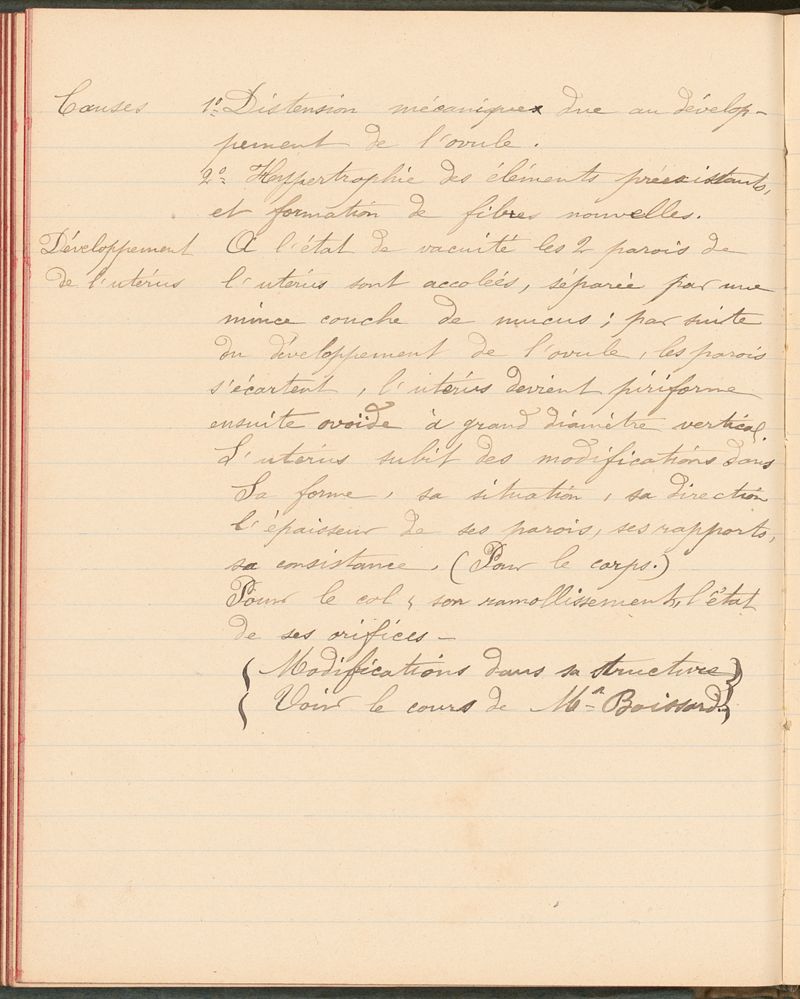 Causes 1º Distension mécanique due au dévelop-
pement de l'ovule.
2º Hyppertrophie des éléments préexistants,
et formation de fibres nouvelles.
Développement A l'état de vacuité les 2 parois de
de l'utérus l'utérus sont accolées, séparée par une
mince couche de mucus ; par suite
du développement de l'ovule, les parois
s'écartent, l'utérus devient piriforme
ensuite ovoïde à grand diamètre vertical.
L'utérus subit des modifications dans
Sa forme, sa situation, sa direction
l'épaisseur de ses parois, ses rapports,
sa consistance. (Pour le corps.)
Pour le col, son ramollissement, l'état
de ses orifices -
{ Modifications dans sa structure }
{ Voir le cours de Mr Boissard. }